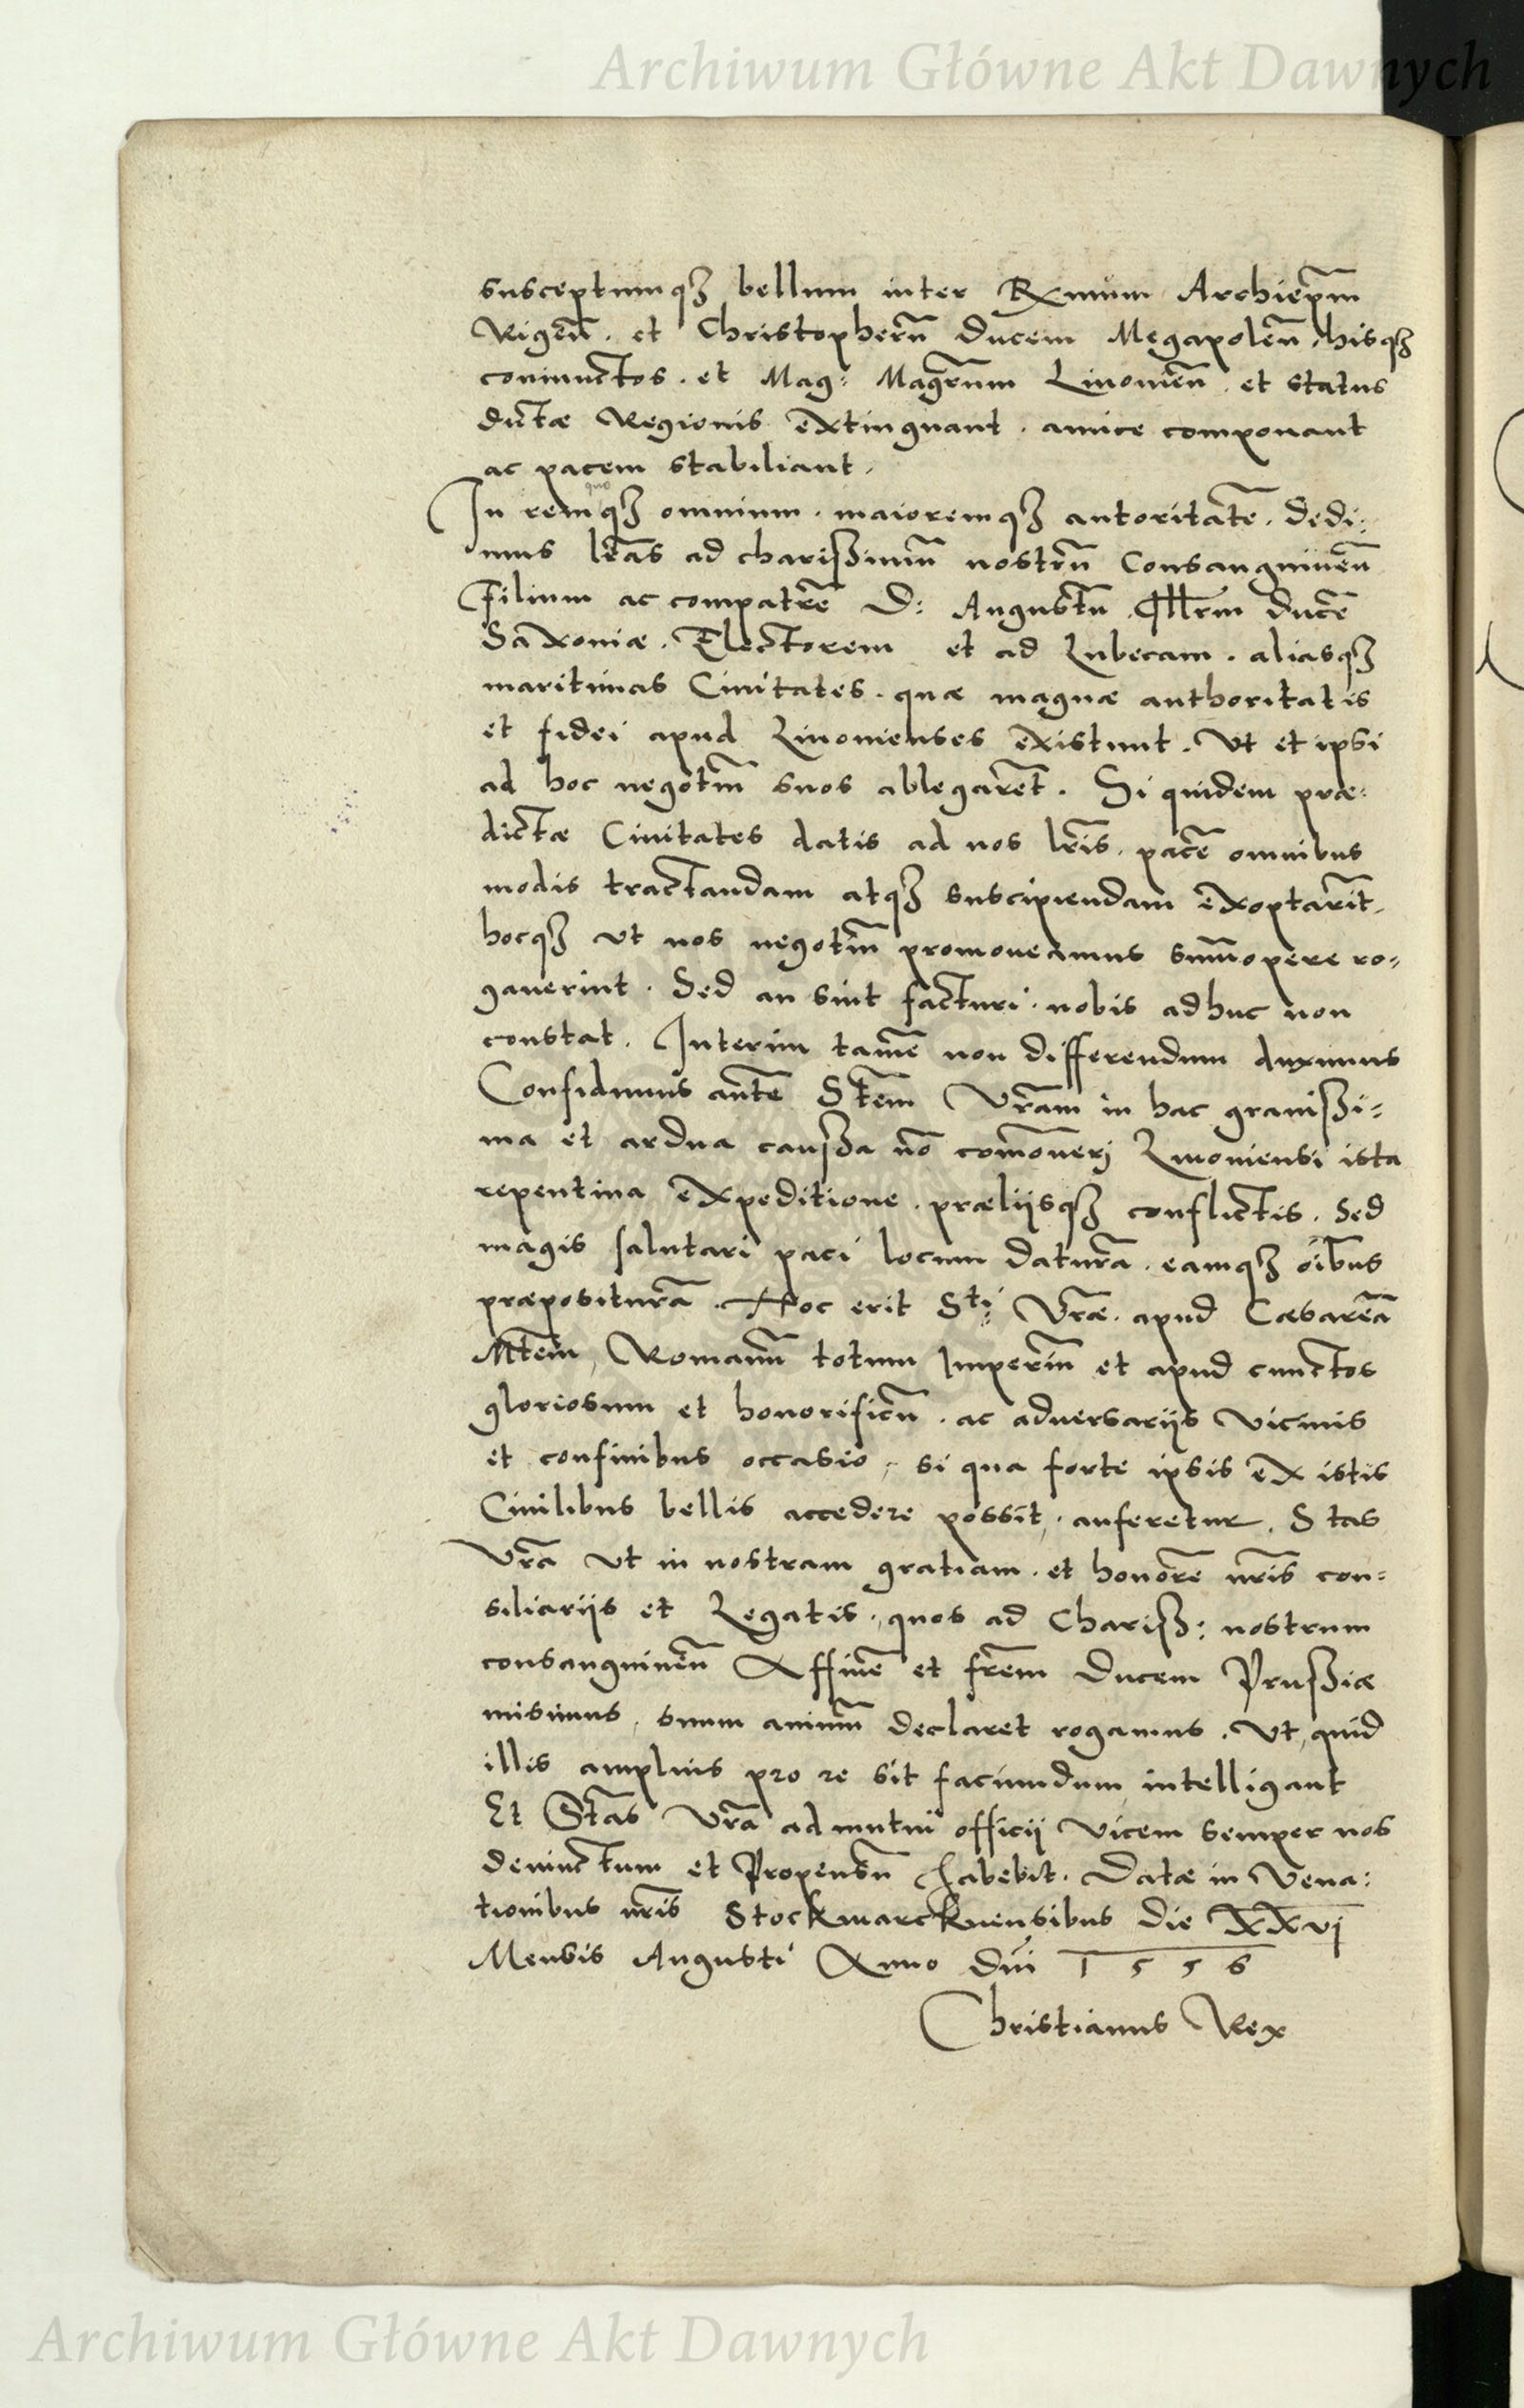 Archiwum Główne Akt Dawnych
susceptumq3 bellum inter Rxmum Archiepm̃
Rigeñ. et Christopherũ Ducem Megapoleñ, hisq3
coniunctos. et Mag: Magr̃um Liuonieñ. et status
dictæ Regionis extinguant. amice componant
ac pacem stabiliant.
quo
In remq3 omnium. maioremq3 autoritatẽ. dedi:
mus lr̃as ad charißimũ nostrũ Consanguineũ
Filium ac compatrẽ D: Augustũ. Illr̃m ducẽ
Saxoniæ. Electorem et ad Lubecam. aliasq3
maritimas Ciuitates. quæ magnæ authoritatis
et fidei apud Liuonienses existunt. Ut et ipsi
ad hoc negotiũ suos ablegarẽt. Si quidem præ:
dictæ Ciuitates datis ad nos lr̃is. pacẽ omnibus
modis tractandam atq3 suscipiendam exoptarĩt.
hocq3 ut nos negotiũ promoueamus sum̃opere ro=
gauerint. Sed an sint facturi. nobis adhuc non
constat. Interim tamẽ non differendum duximus
Confidimus autẽ Stem̃ Vr̃am in hac grauißi=
ma et ardua caußa nõ com̃oueri Liuoniensi ista
repentina expeditione. præliisq3 conflictis. sed
magis salutari paci locum daturã. eamq3 oĩbus
præpositurã. Hoc erit Sti: Vr̃æ. apud Cæsareã
Mtem̃, Romanũ totum Imperiũ et apud cunctos
gloriosum et honorificũ. ac aduersariis vicinis
et confinibus occasio, si qua forte ipsis ex istis
Ciuilibus bellis accedere possit, auferetur. Stas
Vr̃a ut in nostram gratiam. et honorẽ nr̃is con=
siliariis et Legatis, quos ad Chariß: nostrum
consanguineũ Affinẽ et fr̃em Ducem Prußiæ
misimus, suum animũ declaret rogamus. Ut, quid
illis amplius pro re sit faciundum, intelligant
Et Stãs Vr̃a ad mutui officii vicem semper nos
deuinctum et Propensũ habebit. Datæ in Vena:
tionibus nr̃is Stockmarcknensibus die XXvi
Mensis Augusti Anno Dñi 1556
Christianus Rex
Archiwum Główne Akt Dawnych